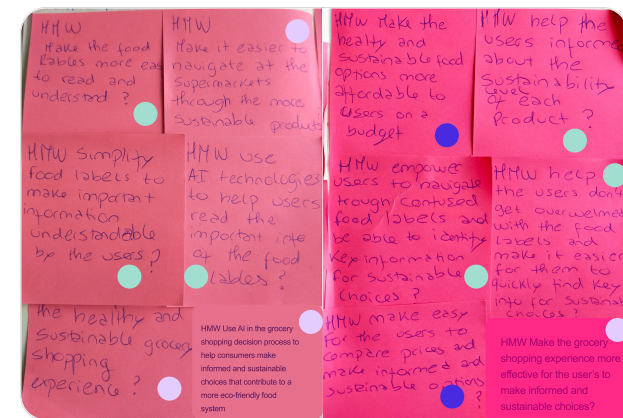 HMW
Make the food
Lables more eas
to read and
understand ?
HMW
Make it easier to
navigate at the
supermarkets
through the more
sustainable products
HMW Simplify
food labels to
make important
information
understandable
by the users ?
HMW use
AI technologies
to help users
read the
important info
of the food
lables ?
the healthy and
sustainable grocery
shopping
experience ?
HMW Use AI in the grocery
shopping decision process to
help consumers make
informed and sustainable
choices that contribute to a
more eco-friendly food
system
HMW Make the
healty and
sustainable food
options more
affordable to
users on a
budget
HMW help the
users informe
about the
sustainability
level
of each
Product ?
HMW empower
users to navigate
trough confused
food labels and
be able to identify
key information
for sustainable
choices ?
HMW help
the users don't
get overwelmed
with the food
labels and
make it easier
for them to
quickly find key
info for sustainab
choices ?
HMW make easy
for the users to
compare prices and
make informed and
sustainable options
?
HMW Make the grocery
shopping experience more
effective for the user's to
make informed and
sustainable choices?